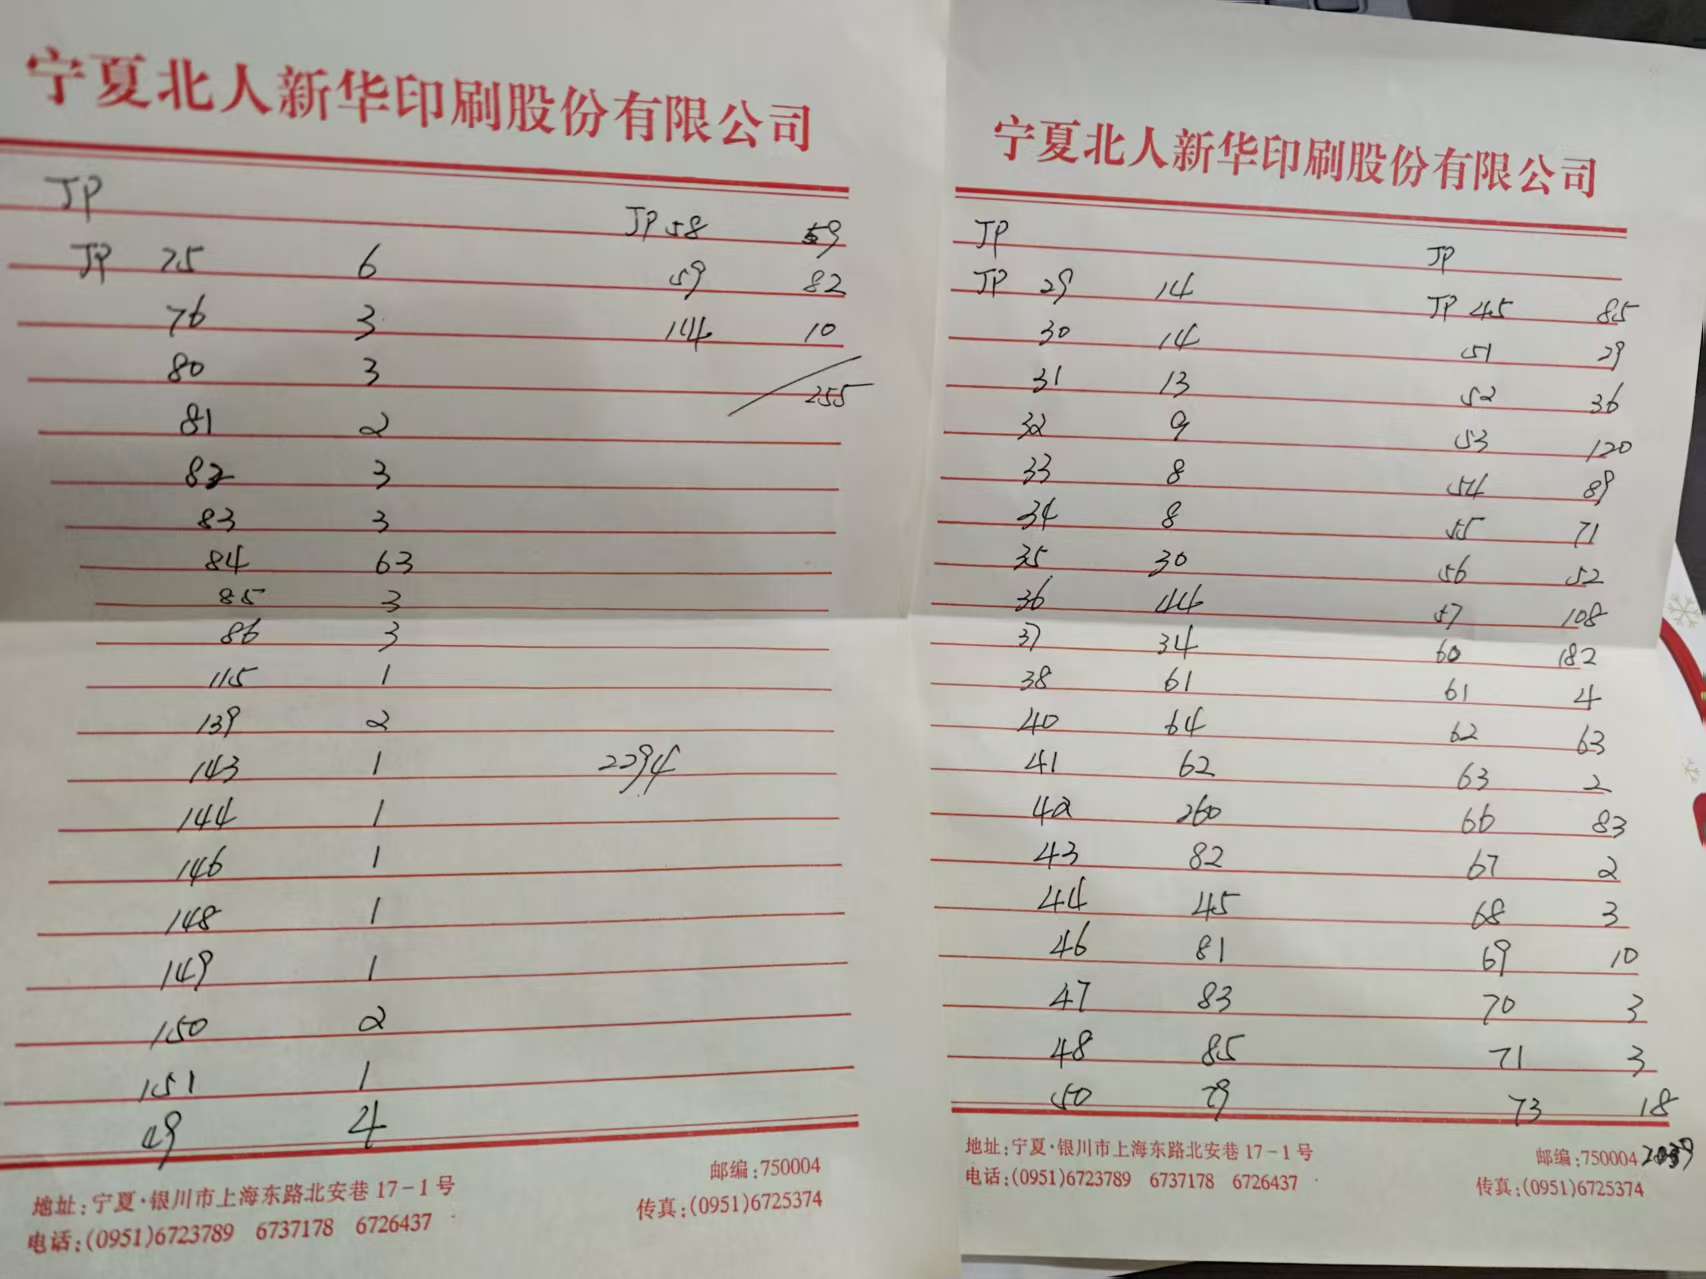 宁夏北人新华印刷股份有限公司
JP
JP 75 6
76 3
80 3
81 2
82 3
83 3
84 63
85 3
86 3
115 1
139 2
143 1
144 1
146 1
148 1
149 1
150 2
151 1
49 4
JP 58 59
59 82
144 10
255
2294
地址:宁夏·银川市上海东路北安巷17-1号
邮编:750004
电话:(0951)6723789 6737178 6726437
传真:(0951)6725374
宁夏北人新华印刷股份有限公司
JP
JP 29 14
30 14
31 13
32 9
33 8
34 8
35 30
36 44
37 34
38 61
40 64
41 62
42 260
43 82
44 45
46 81
47 83
48 85
50 79
JP
JP 45 85
51 29
52 36
53 120
54 89
55 71
56 52
57 108
60 182
61 4
62 63
63 2
66 83
67 2
68 3
69 10
70 3
71 3
73 18
2039
地址:宁夏·银川市上海东路北安巷17-1号
邮编:750004
电话:(0951)6723789 6737178 6726437
传真:(0951)6725374